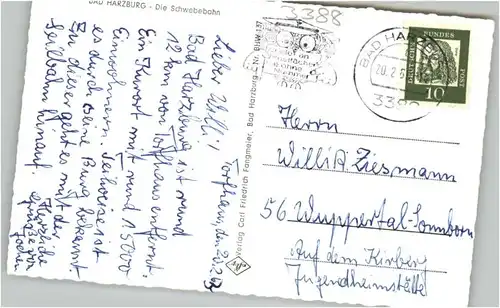 BAD HARZBURG - Die Schwebebahn
Torfhaus, den 20.2.63
Lieber Willi!
Bad Harzburg ist rund
12 km von Torfhaus entfernt.
Ein Kurort mit rund 15000
Einwohnern. Teilweise ist
es durch seine Burg bekannt
Zu dieser geht es mit der
Seilbahn hinauf.
Herzliche
Grüße von
Jochen
Verlag Carl Friedrich Fangmeier, Bad Harzburg - Nr. BBW 157
3388
BAD HARZBURG
20.2.6
3388
DEUTSCHE
POST
10
Herrn
Willi Ziesmann
56 Wuppertal-Sonnborn
Auf dem Kirberg
Jugendheimstätte